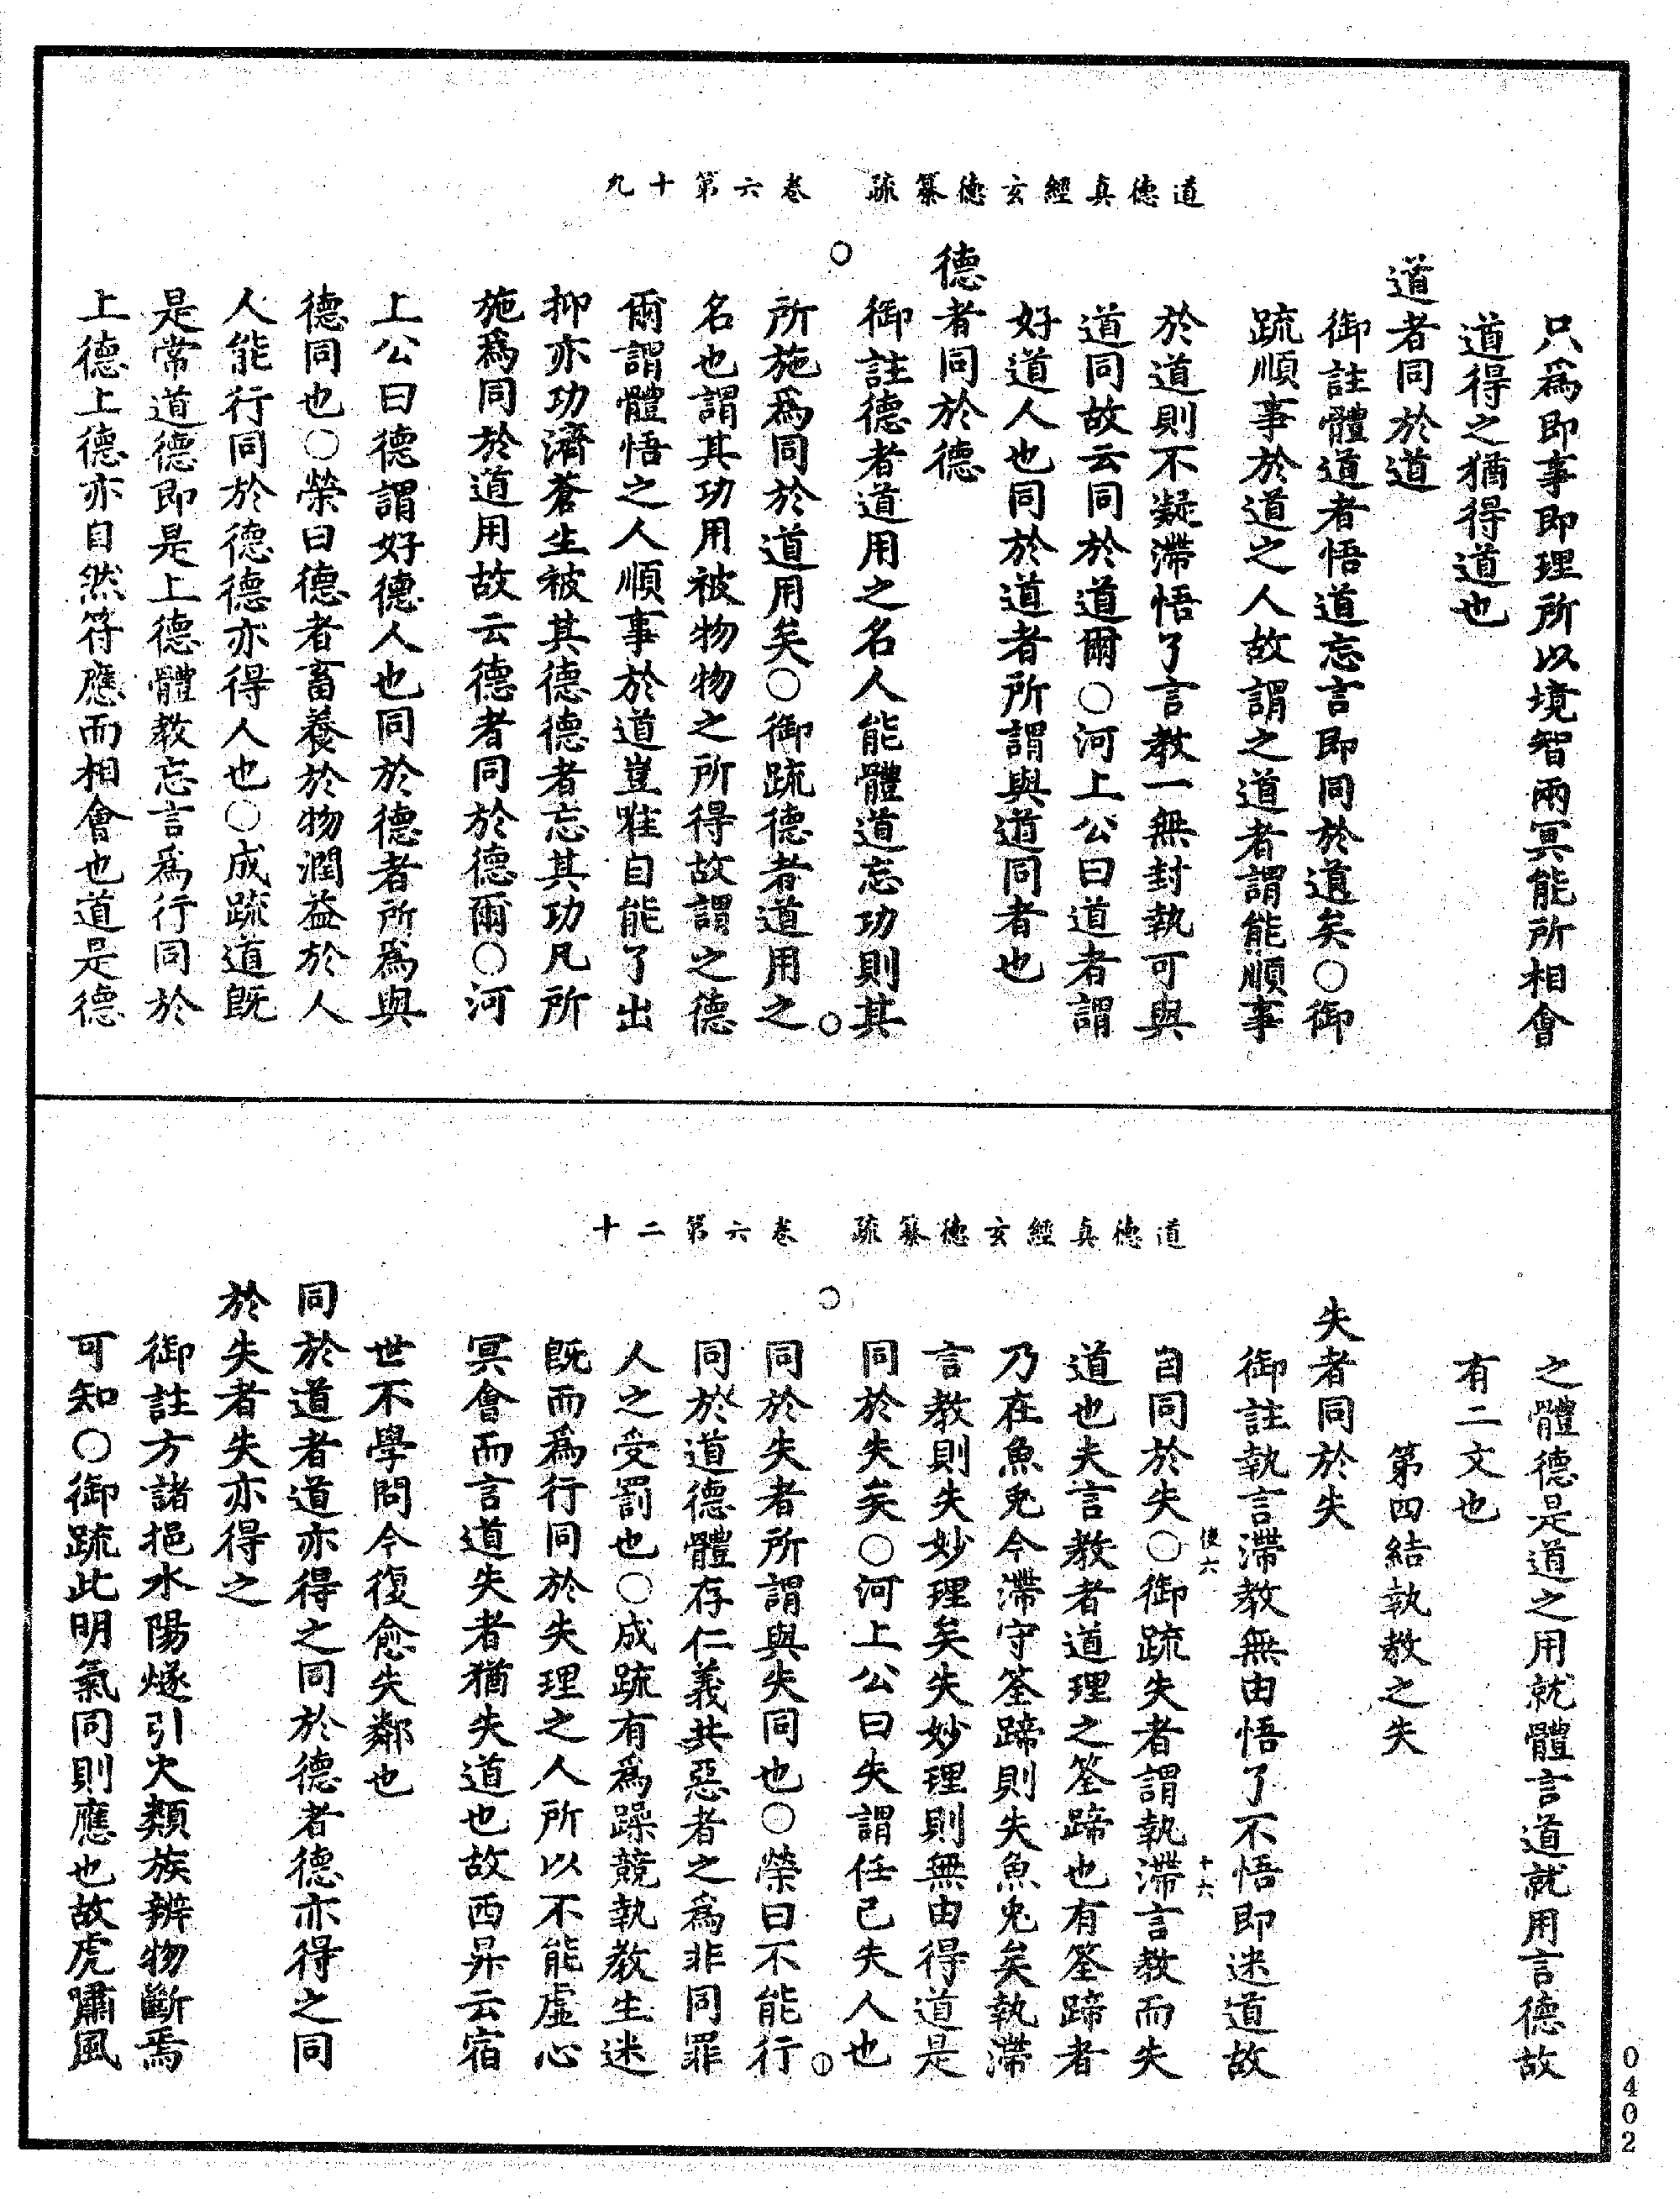 道德真經玄德纂疏　卷六第十九
只爲即事即理所以境智兩冥能所相會
道得之猶得道也
道者同於道
御註體道者悟道忘言即同於道矣○御
疏順事於道之人故謂之道者謂能順事
於道則不凝滯悟了言教一無封執可與
道同故云同於道爾○河上公曰道者謂
好道人也同於道者所謂與道同者也
德者同於德
御註德者道用之名人能體道忘功則其
所施爲同於道用矣○御疏德者道用之
名也謂其功用被物物之所得故謂之德
爾謂體悟之人順事於道豈唯自能了出
抑亦功濟蒼生被其德德者忘其功凡所
施爲同於道用故云德者同於德爾○河
上公曰德謂好德人也同於德者所爲與
德同也○榮曰德者畜養於物潤益於人
人能行同於德德亦得人也○成疏道旣
是常道德即是上德體教忘言爲行同於
上德上德亦自然符應而相會也道是德
道德真經玄德纂疏　卷六第二十
之體德是道之用就體言道就用言德故
有二文也
第四結執教之失
失者同於失
御註執言滯教無由悟了不悟即迷道故
自同於失○御疏失者謂執滯言教而失
道也夫言教者道理之筌蹄也有筌蹄者
乃在魚兎今滯守筌蹄則失魚兎矣執滯
言教則失妙理矣失妙理則無由得道是
同於失矣○河上公曰失謂任已失人也
同於失者所謂與失同也○榮曰不能行
同於道德體存仁義共惡者之爲非同罪
人之受罰也○成疏有爲躁競執教生迷
旣而爲行同於失理之人所以不能虛心
冥會而言道失者猶失道也故西昇云宿
世不學問今復愈失鄰也
同於道者道亦得之同於德者德亦得之同
於失者失亦得之
御註方諸挹水陽燧引火類族辨物斷焉
可知○御疏此明氣同則應也故虎嘯風
使六
十六
0402